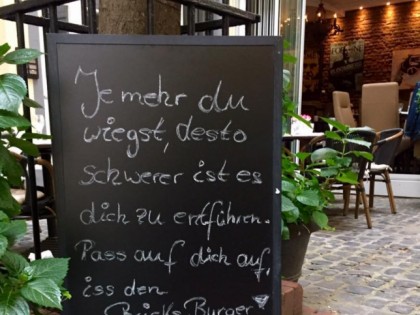 Je mehr du
wiegst, desto
schwerer ist es
dich zu entführen.
Pass auf dich auf,
iss den
Bricks Burger